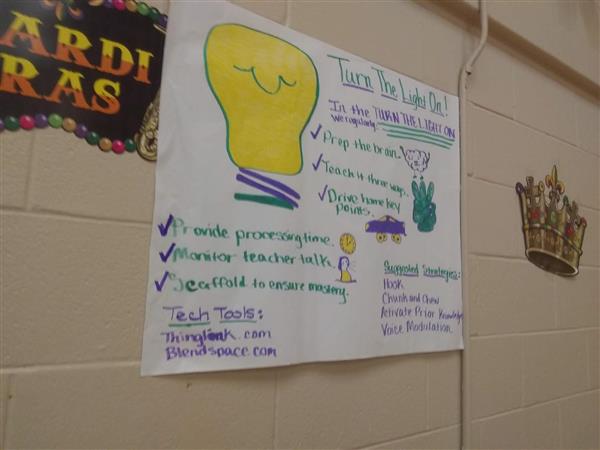 ARDI
RAS
Turn The Light On!
In the TURN THE LIGHT ON
we regularly:
✓Prep the brain.
✓Teach it three ways.
✓Drive home key
points.
✓Provide processing time.
✓Monitor teacher talk.
✓Scaffold to ensure mastery.
Tech Tools:
Thinglink.com
Blendspace.com
Suggested Strategies:
Hook
Chunk and Chew
Activate Prior Knowledge
Voice Modulation